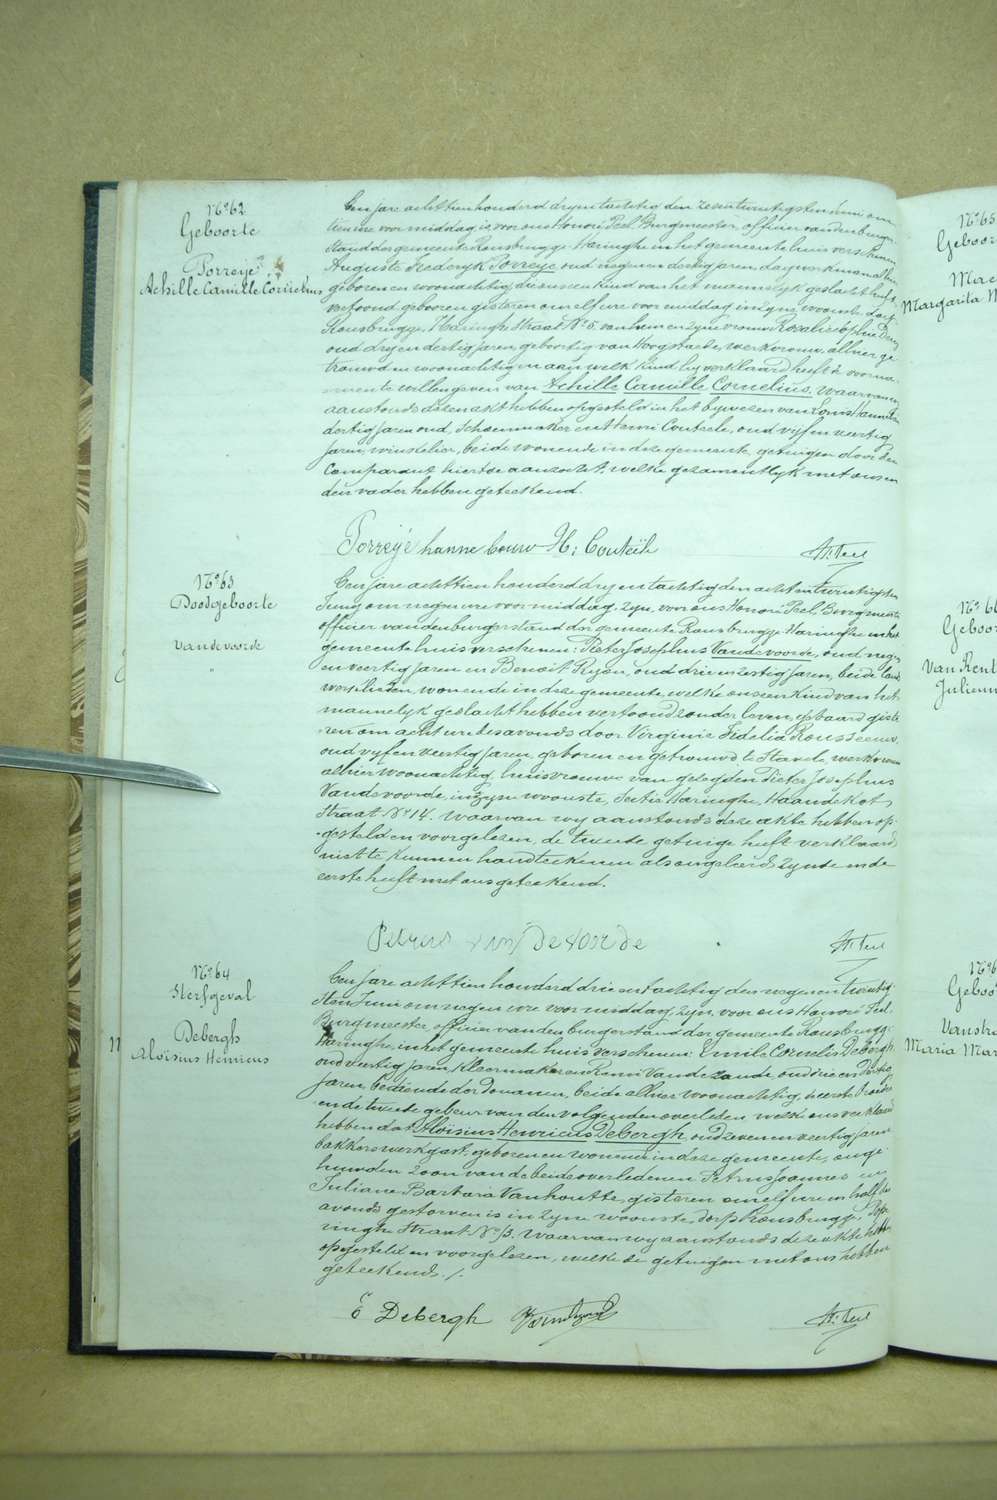 N° 62
Geboorte
Porreye
Achille Camille Cornelius
Een jare achttien honderd dry en tachtig den zesentwintigsten Juni om
tien ure voor middag is voor ons Honoré Peel, Burgmeester, officier van den burger-
stand der gemeente Rousbrugge-Haringhe in het gemeentehuis verschenen
Auguste Frederyk Porreye, oud negen en dertig jaren, dagwerkman alhier
geboren en woonachtig, die ons een kind van het mannelyk geslacht heeft
vertoond geboren gisteren om elf ure voor middag in zyne woonste, dorp
Rousbrugge, Haringhe Straat N° 5, van hem en zyne vrouw Rosalie Sophie
oud dry en dertig jaren, geboortig van Hoogstaede, werkvrouw, alhier ge-
trouwd en woonachtig en aan welk kind hy verklaard heeft de voorna-
men te willen geven van Achille Camille Cornelius. Waarvan wy
aanstonds dezen akt hebben opgesteld in het bywezen van Louis Hannebouw
dertig jaren oud, Schoenmaker en Henri Couteele, oud vyf en veertig
jaren, winkelier, beide wonende in deze gemeente, getuigen door den
Comparant hiertoe aanzocht, welke gezamentlyk met ons en
den vader hebben geteekend.
Porreye hannebouw H: Couteele H. Peel
N° 63
Doodgeboorte
Vandevoorde
"
Een jare achttien honderd dry en tachtig den acht en twintigsten
Juny om negen ure voor middag, zyn, voor ons Honoré Peel, Burgmeester
officier van den burgerstand der gemeente Rousbrugge-Haringhe in het
gemeentehuis verschenen: Pieter Josephus Vandevoorde, oud negen
en veertig jaren en Benoit Ryon, oud drie en zestig jaren, beide land-
werklieden, wonende in deze gemeente, welke ons een kind van het
mannelyk geslacht hebben vertoond zonder leven, gebaard giste-
ren om acht ure des avonds door Virginie Fidelia Rousseeuw,
oud vyf en veertig jaren, geboren en getrouwd te Stavele, werkvrouw
alhier woonachtig, huisvrouw van gezegden Pieter Josephus
Vandevoorde, in zyne woonste, sectie Haringhe, Haandekot
straat N° 14. Waarvan wy aanstonds deze akte hebben op-
gesteld en voorgelezen, de tweede getuige heeft verklaard
niet te kunnen handteekenen als ongeleerd zynde en de
eerste heeft met ons geteekend.
Petrus van De voorde H. Peel
N° 64
Sterfgeval
Debergh
Aloïsius Henricus
Een jare achttien honderd drie en tachtig den negen en twintig-
sten Junie om negen ure voor middag, zyn, voor ons Honoré Peel,
Burgmeester, officier van den burgerstand der gemeente Rousbrugge-
Haringhe, in het gemeentehuis verschenen: Emile Cornelis Debergh
oud veertig jaren, kleermaker en Remi Vandezande, oud drie en dertig
jaren, bediende der Douanen, beide alhier woonachtig, de eerste broeder
en de tweede gebuur van den volgenden overleden, welke ons verklaard
hebben dat Aloïsius Henricus Debergh, oud zeven en veertig jaren
bakkerswerkgast, geboren en wonende in deze gemeente, onge-
huwden zoon van de beide overledenen Petrus Joannes en
Juliana Barbara Vanhoutte, gisteren om elf ure en half des
avonds gestorven is in zyne woonste, dorp Rousbrugge, Pope-
ringhe Straat N° 13. Waarvan wy aanstonds deze akte hebben
opgesteld en voorgelezen, welke de getuigen met ons hebben
geteekend. /.
E Debergh H. Peel
N° 65
Geboor
Mae
Margarita M
N° 66
Geboor
Van Rent
Julienn
N° 6
Geboo
Vanstr
Maria Mar